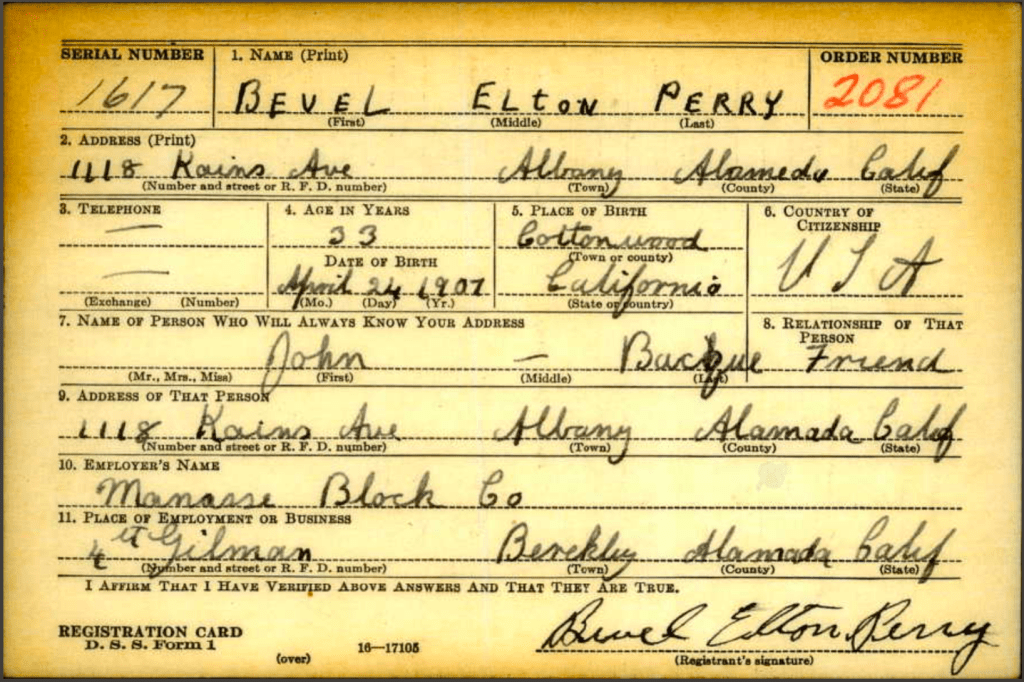 SERIAL NUMBER 1. NAME (Print) ORDER NUMBER
1617 BEVEL ELTON PERRY 2081
(First) (Middle) (Last)
2. ADDRESS (Print)
1118 Kains Ave Albany Alameda Calif
(Number and street or R. F. D. number) (Town) (County) (State)
3. TELEPHONE 4. AGE IN YEARS 5. PLACE OF BIRTH 6. COUNTRY OF CITIZENSHIP
— 33 Cottonwood
DATE OF BIRTH (Town or county)
— April 24 1907 California U S A
(Exchange) (Number) (Mo.) (Day) (Yr.) (State or country)
7. NAME OF PERSON WHO WILL ALWAYS KNOW YOUR ADDRESS 8. RELATIONSHIP OF THAT PERSON
John — Bacque Friend
(Mr., Mrs., Miss) (First) (Middle) (Last)
9. ADDRESS OF THAT PERSON
1118 Kains Ave Albany Alamada Calif
(Number and street or R. F. D. number) (Town) (County) (State)
10. EMPLOYER'S NAME
Manasse Block Co
11. PLACE OF EMPLOYMENT OR BUSINESS
Gilman Berekley Alamada Calif
(Number and street or R. F. D. number) (Town) (County) (State)
I AFFIRM THAT I HAVE VERIFIED ABOVE ANSWERS AND THAT THEY ARE TRUE.
Bevel Elton Perry
REGISTRATION CARD
D. S. S. Form 1
(over) 16—17105 (Registrant's signature)